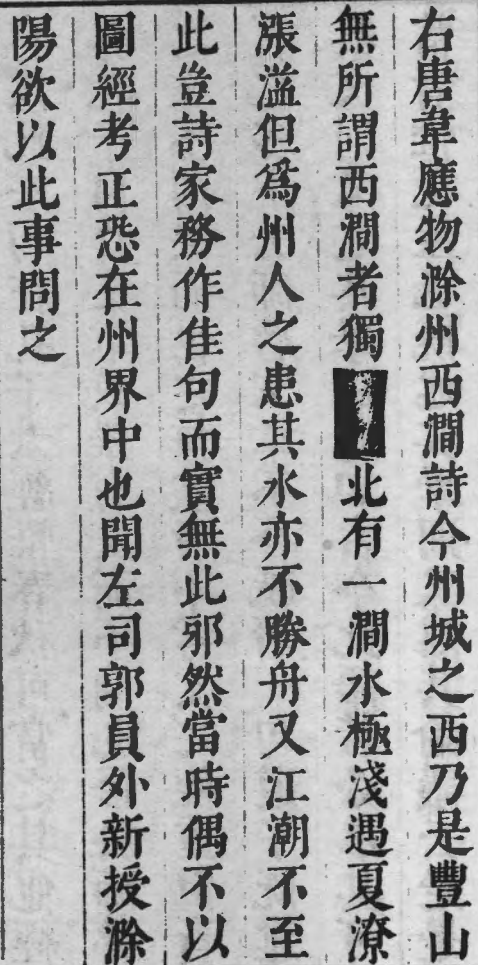 右唐韋應物滁州西澗詩今州城之西乃是豐山
無所謂西澗者獨北有一澗水極淺遇夏潦
漲溢但爲州人之患其水亦不勝舟又江潮不至
此豈詩家務作佳句而實無此邪然當時偶不以
圖經考正恐在州界中也聞左司郭員外新授滁
陽欲以此事問之